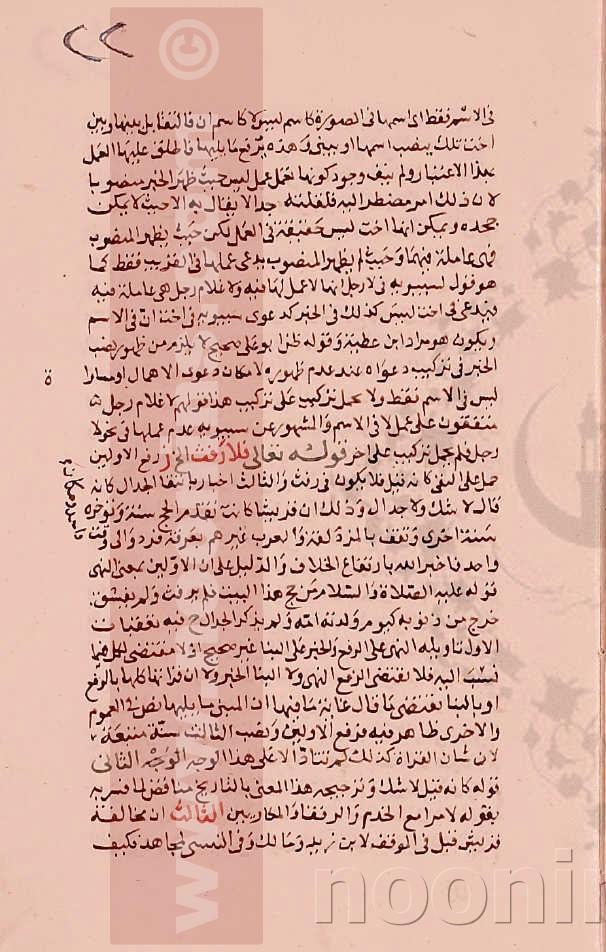 ٢٢
فى الاسم فقط اى اسمها فى الصورة كاسم ليس ولا كاسم ان فالتقابل بينها وبين
اخت تلك ينصب اسمها او يبنى وهذه يرتفع ما يليها فاطلق عليها العمل
بهذا الاعتبار ولم ينف وجود كونها تعمل عمل ليس حيث ظهر الخبر منصوبا
لان ذلك امر مضطر اليه فلعلته جدا لا يقال به الا حيث لا يمكن
جحده ويمكن انها اخت ليس حقيقة فى العمل لكن حيث يظهر المنصوب
فهى عاملة فيهما وحيث لم يظهر المنصوب يدعى عملها فى القريب فقط كما
هو قول لسيبويه فى لا رجل انها لا عمل لها فيه ولا غلام رجل هى عاملة فيه
فيدعى فى اخت ليس كذلك فى الخبر كدعوى سيبويه فى اخت ان فى الاسم
ويكون هو مراد ابن عطية وقوله ظنا ابو على صحيح لا يلزم من ظهور نصب
الخبر فى تركيب دعواه عند عدم ظهوره لامكان دعوى الاهمال او
ليس فى الاسم فقط ولا يحمل تركيب على تركيب هذا قولهم لا غلام رجل
متفقون على عمل لا فى الاسم والمشهور عن سيبويه عدم عملها فى نحو لا
رجل فلم يحمل تركيب على اخر قوله تعالى فلا رفث الخ رفع الاولين
حمل على النهى كانه قيل فلا يكون فى رفث والثالث اخبار بانتفا الجدال كانه
قال لا شك ولا جدال وذلك ان قريشا كانت تقدم الحج سنة وتوخره
سنة اخرى وتقف بالمزدلفة والعرب غيرهم بعرفة فرد والى وقت
واحد فاخبر الله بارتفاع الخلاف والدليل على ان الاولين بمعنى النهى
قوله عليه الصلاة والسلام من حج هذا البيت فلم يرفث ولم يفسق
خرج من ذنوبه كيوم ولدته امه ولم يذكر الجدال ح فيه تعقبات
الاول تاويله النهى على الرفع والخبر على البنا غير صحيح اذ لا مقتضى لكل منهما
نسب اليه فلا يقتضى الرفع النهى ولا البنا الخبر ولان قراتها كلها بالرفع
او بالبنا يقتضى ما قال غاية ما فيها ان المبنى ما يليها نص فى العموم
والاخرى ظاهر فيه فرفع الاولين ونصب الثالث سنة متبعة
لان شان القراة كذلك لم تتاد الا على هذا الوجه الوجه الثانى
قوله كانه قيل لا شك وترجيحه هذا المعنى بالتاريخ مناقض لما فسر به
بقوله لا مرا مع الخدم والرفقا والمكاريين الثالث ان مخالفة
قريش قيل فى الموقف لابن زيد ومالك وفى النسى لمجاهد فكيف